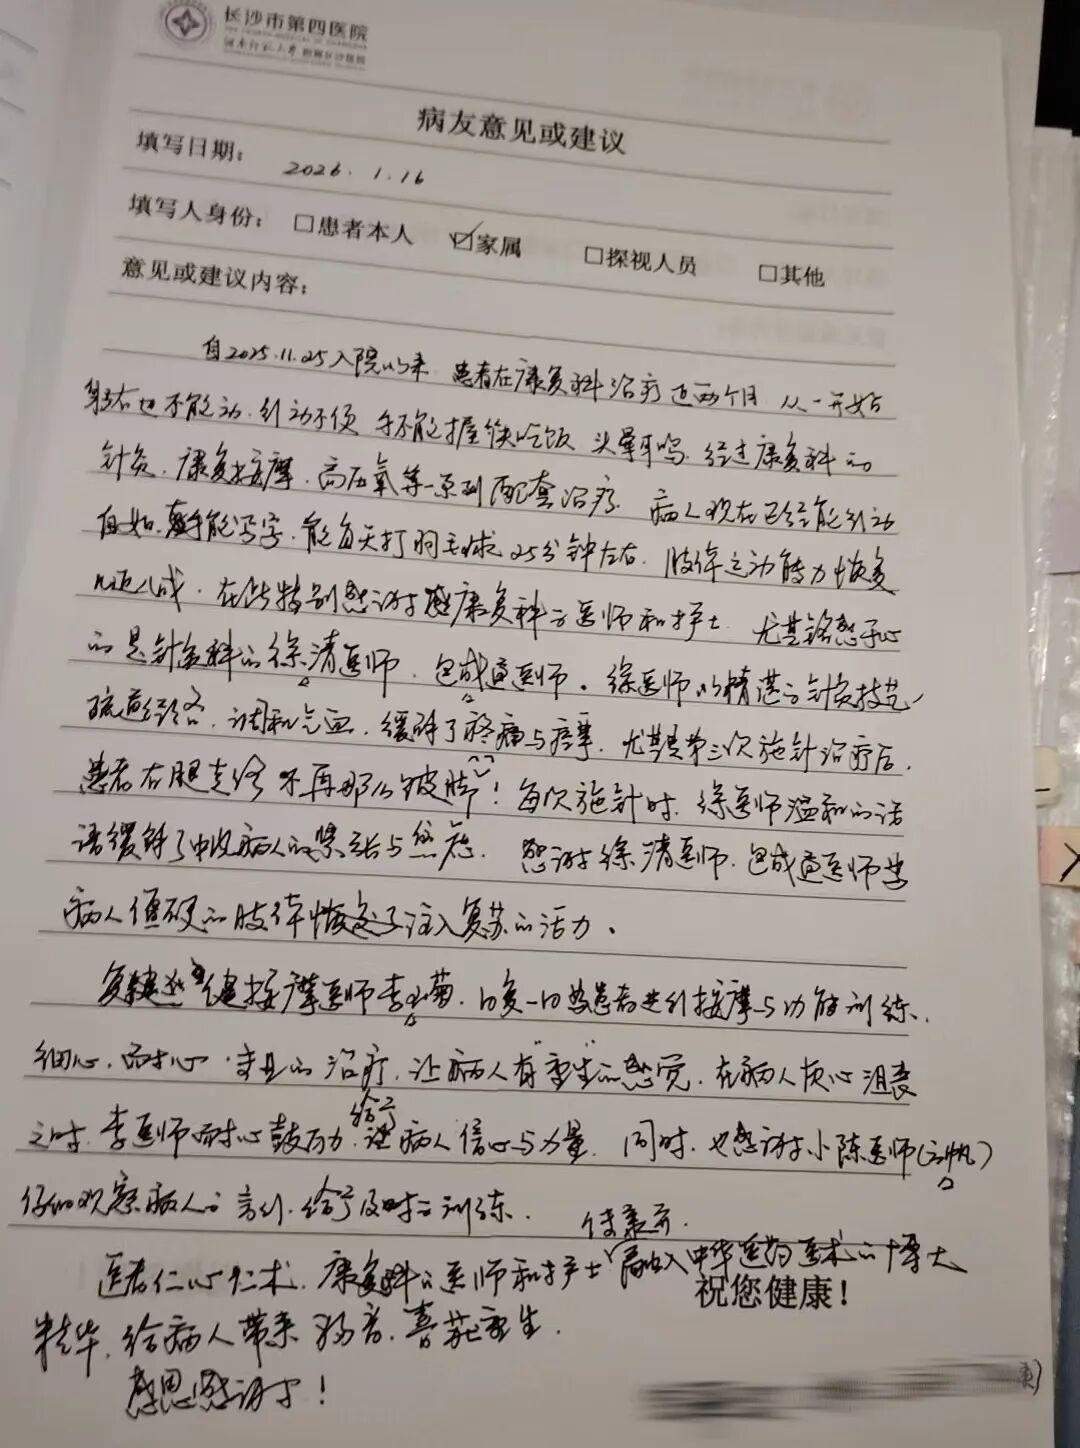 长沙市第四医院
THE FOURTH HOSPITAL OF CHANGSHA
湖南师范大学 附属长沙医院
病友意见或建议
填写日期: 2026.1.16
填写人身份: □患者本人 ☑家属 □探视人员 □其他
意见或建议内容:
自2025.11.25入院以来 患者在康复科治疗近两个月 从一开始
身右也不能动.行动不便 手不能握筷吃饭 头晕耳鸣.经过康复科的
针灸.康复按摩.高压氧等一系列配套治疗.病人现在已经能行动
自如.手能写字.能每天打羽毛球25分钟左右.肢体运动能力恢复
近八成.在此特别感谢康复科的医师和护士 尤其铭感于心
的是针灸科的徐清医师.包成通医师.徐医师以精湛的针灸技艺
疏通经络.调和气血.缓解了疼痛与痉挛.尤其是第三次施针治疗后.
患者右腿走路不再那么"跛脚"!每次施针时.徐医师温和的话
语缓解了病人的紧张与焦虑.感谢徐清医师.包成通医师关
病人僵硬的肢体恢复了注入复苏的活力.
复健按摩医师李菊.日复一日为患者进行按摩与功能训练.
细心.耐心.专业的治疗.让病人有"重生"的感觉.在病人灰心沮丧
之时.李医师耐心鼓励.给予病人信心与力量.同时.也感谢小陈医师(帆)
仔细观察病人的言行.给予及时的训练.
医者仁心仁术.康复科的医师和护士传承并融入中华医药医术的博大
祝您健康!
精华.给病人带来福音.喜获重生.
感恩感谢!